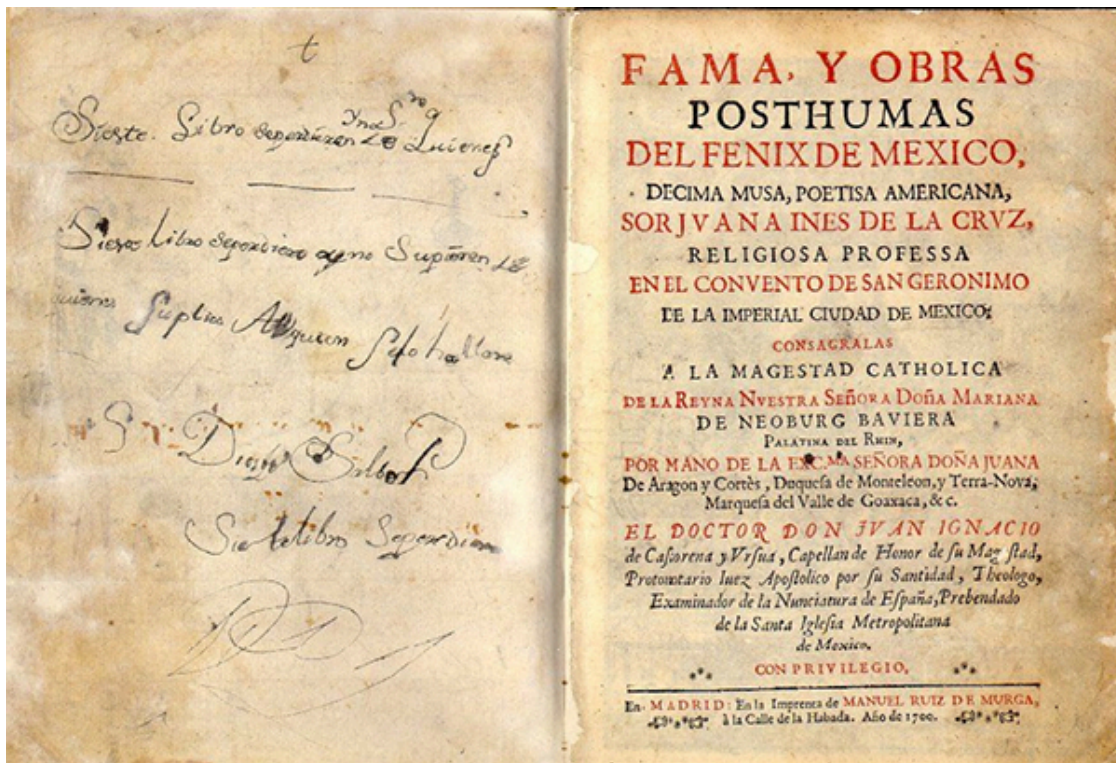 t
Sieste. Libro seperdiere
Siese libro seperdiere yno Supieren
quienes Suplico Alquien Selo hallare
Sieste libro Seperdiere
FAMA, Y OBRAS
POSTHUMAS
DEL FENIX DE MEXICO,
DECIMA MUSA, POETISA AMERICANA,
SOR JVANA INES DE LA CRVZ,
RELIGIOSA PROFESSA
EN EL CONVENTO DE SAN GERONIMO
DE LA IMPERIAL CIUDAD DE MEXICO;
CONSAGRALAS
A LA MAGESTAD CATHOLICA
DE LA REYNA NVESTRA SEÑORA DOÑA MARIANA
DE NEOBURG BAVIERA
PALATINA DEL RHIN,
POR MANO DE LA EXC.MA SEÑORA DOÑA JUANA
De Aragon y Cortès, Duquesa de Monteleon, y Terra-Nova,
Marquesa del Valle de Goaxaca, & c.
EL DOCTOR DON JVAN IGNACIO
de Castorena y Vrsua, Capellan de Honor de su Magestad,
Protonotario Iuez Apostolico por su Santidad, Theologo,
Examinador de la Nunciatura de España, Prebendado
de la Santa Iglesia Metropolitana
de Mexico.
CON PRIVILEGIO,
En MADRID: En la Imprenta de MANUEL RUIZ DE MURGA,
à la Calle de la Habada. Año de 1700.